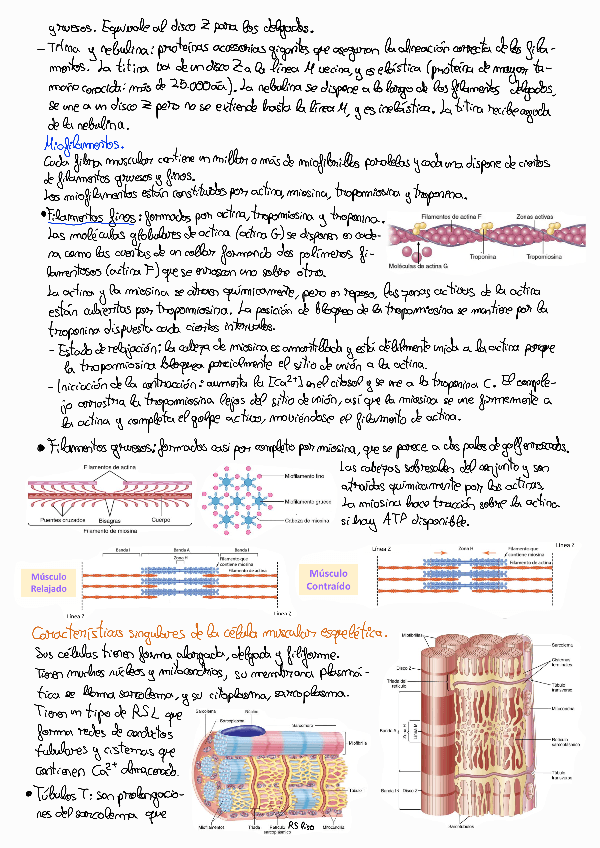 gruesos. Equivale al disco Z para los delgados.
- Titina y nebulina: proteínas accesorias gigantes que aseguran la alineación correcta de los fila-
mentos. La titina va de un disco Z a la línea M vecina, y es elástica (proteína de mayor ta-
maño conocida: más de 25.000aa). La nebulina se dispone a lo largo de los filamentos delgados,
se une a un disco Z pero no se extiende hasta la línea M, y es inelástica. La titina recibe ayuda
de la nebulina.
Miofilamentos.
Cada fibra muscular contiene un millar o más de miofibrillas paralelas y cada una dispone de cientos
de filamentos gruesos y finos.
Los miofilamentos están constituidos por: actina, miosina, tropomiosina y troponina.
• Filamentos finos: formados por actina, tropomiosina y troponina.
Las moléculas globulares de actina (actina G) se disponen en cade-
na como las cuentas de un collar formando dos polímeros fi-
lamentosos (actina F) que se enroscan uno sobre otro.
Filamentos de actina F
Zonas activas
Moléculas de actina G
Troponina
Tropomiosina
La actina y la miosina se atraen químicamente, pero en reposo, las zonas activas de la actina
están cubiertas por tropomiosina. La posición de bloqueo de la tropomiosina se mantiene por la
troponina dispuesta cada ciertos intervalos.
- Estado de relajación: la cabeza de miosina es amartillada y está débilmente unida a la actina porque
la tropomiosina bloquea parcialmente el sitio de unión a la actina.
- Iniciación de la contracción: aumenta la [Ca2+] en el citosol y se une a la troponina C. El comple-
jo arrastra la tropomiosina lejos del sitio de unión, así que la miosina se une firmemente a
la actina y completa el golpe activo, moviéndose el filamento de actina.
• Filamentos gruesos: formados casi por completo por miosina, que se parece a dos palos de golf enroscados.
Las cabezas sobresalen del conjunto y son
atraídos químicamente por las actinas.
La miosina hace tracción sobre la actina
si hay ATP disponible.
Filamentos de actina
Puentes cruzados
Bisagras
Cuerpo
Filamento de miosina
Miofilamento fino
Miofilamento grueso
Cabeza de miosina
Músculo
Relajado
Banda I
Banda A
Banda I
Zona H
Filamento que
contiene miosina
Filamento de actina
Línea Z
Línea Z
Músculo
Contraído
Línea Z
Zona H
Línea Z
Filamento que
contiene miosina
Filamento de actina
Características singulares de la célula muscular esquelética.
Sus células tienen forma alargada, delgada y filiforme.
Tienen muchos núcleos y mitocondrias, su membrana plasmá-
tica se llama sarcolema, y su citoplasma, sarcoplasma.
Tienen un tipo de REL que
forma redes de conductos
tubulares y cisternas que
contienen Ca2+ almacenado.
• Túbulos T: son prolongacio-
nes del sarcolema que
Sarcolema
Núcleo
Sarcoplasma
Sarcómero
Miofibrilla
Túbulo
Miofilamentos
Tríada
Retículo
sarcoplásmico
Mitocondria
Miofibrillas
Sarcolema
Cisternas
terminales
Disco Z
Tríada de
retículo
Túbulo
transverso
Mitocondria
Banda A
Zona H
Línea M
Retículo
sarcoplásmico
Túbulo
transverso
Banda I
Disco Z
Sarcotúbulos